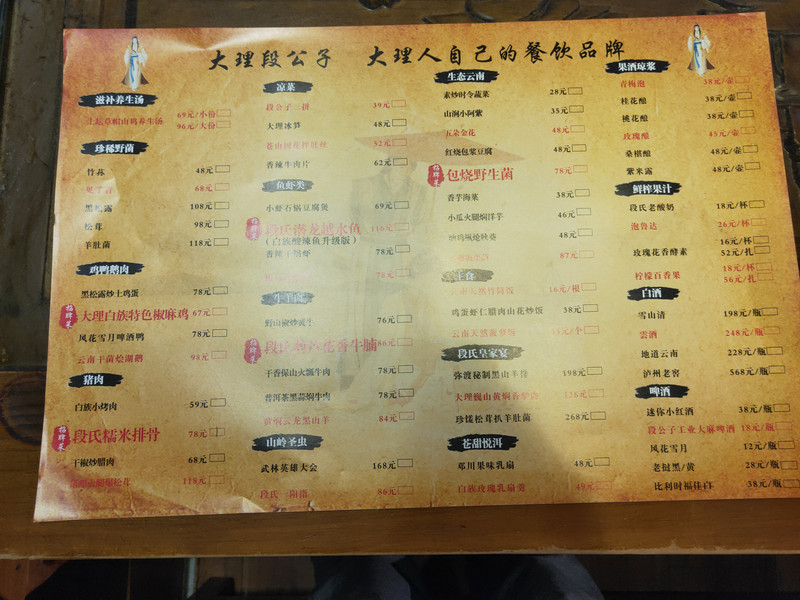 大理段公子 大理人自己的餐饮品牌
滋补养生汤
土坛草帽山鸡养生汤 69元/小份
96元/大份
珍稀野菌
竹荪 48元
68元
黑松露 108元
松茸 98元
羊肚菌 118元
鸡鸭鹅肉
黑松露炒土鸡蛋 78元
招牌菜 大理白族特色椒麻鸡 67元
风花雪月啤酒鸭 78元
云南干菌烩湖鹅 98元
猪肉
白族小烤肉 59元
招牌菜 段氏糯米排骨 78元
干椒炒腊肉 68元
松茸 118元
凉菜
段公子三拼 39元
大理冰笋 48元
52元
香辣牛肉片 62元
鱼虾类
小虾石锅豆腐煲 69元
招牌菜 段氏潜龙越水鱼 116元
(白族酸辣鱼升级版)
78元
78元
牛羊肉
野山椒炒黄牛 76元
招牌菜 香牛腩 86元
干香保山火瓢牛肉 78元
普洱茶黑蒜焖牛肉 78元
黄焖云龙黑山羊 84元
山岭圣虫
武林英雄大会 168元
段氏一阳指 86元
生态云南
素炒时令蔬菜 28元
山涧小阿紫 35元
五朵金花 48元
红烧包浆豆腐 48元
招牌菜 包烧野生菌 78元
香芋海菜 38元
小瓜火腿焖洋芋 46元
48元
87元
主食
18元/根
鸡蛋虾仁腊肉山花炒饭 38元
云南天然菠萝饭 元/个
段氏皇家宴
弥渡秘制黑山羊骨 198元
大理巍山黄焖香驴肉 126元
珍馐松茸扒羊肚菌 268元
苍甜悦洱
邓川果味乳扇 48元
白族玫瑰乳扇羹 49元
果酒琼浆
青梅泡 38元/壶
桂花酿 38元/壶
桃花酿 38元/壶
玫瑰酿 45元/壶
桑椹酿 48元/壶
紫米露 48元/壶
鲜榨果汁
段氏老酸奶 18元/杯
泡鲁达 26元/杯
玫瑰花香酵素 16元/杯
52元/扎
柠檬百香果 18元/杯
56元/扎
白酒
雪山清 198元/瓶
云酒 248元/瓶
地道云南 228元/瓶
泸州老窖 568元/瓶
啤酒
迷你小红酒 38元/瓶
段公子工业大麻啤酒 18元/瓶
风花雪月 12元/瓶
老挝黑/黄 28元/瓶
比利时福佳白 38元/瓶